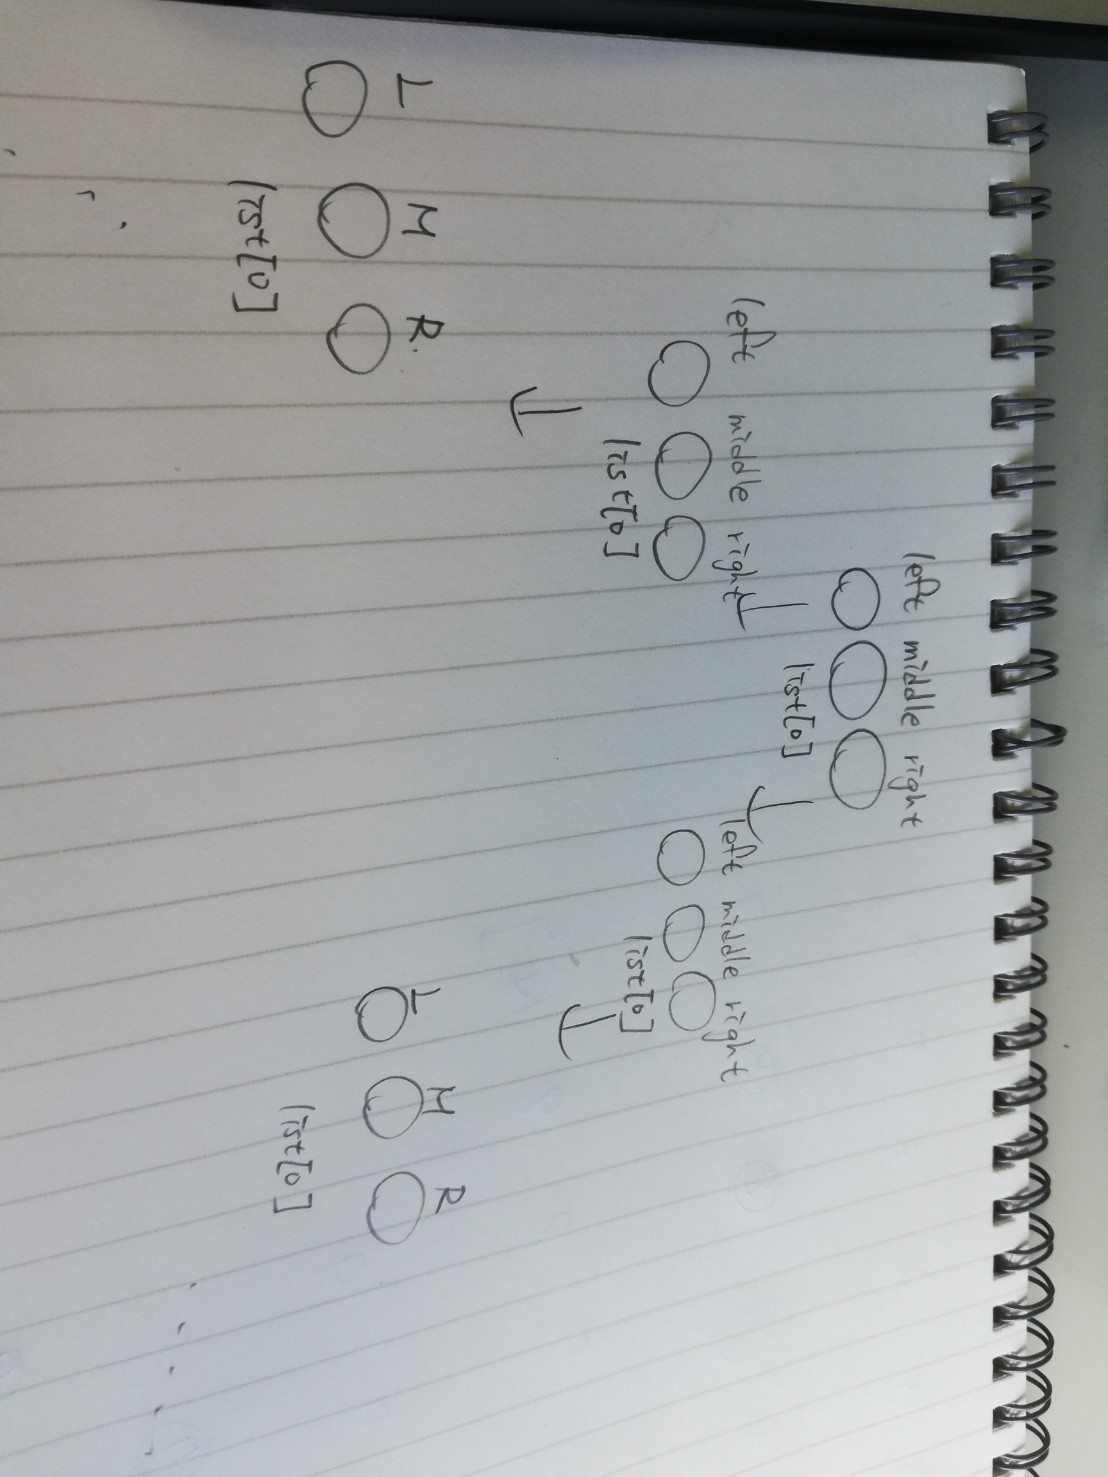 left middle right
list[0]
left middle right
list[0]
left middle right
list[0]
L M R
list[0]
L M R
list[0]